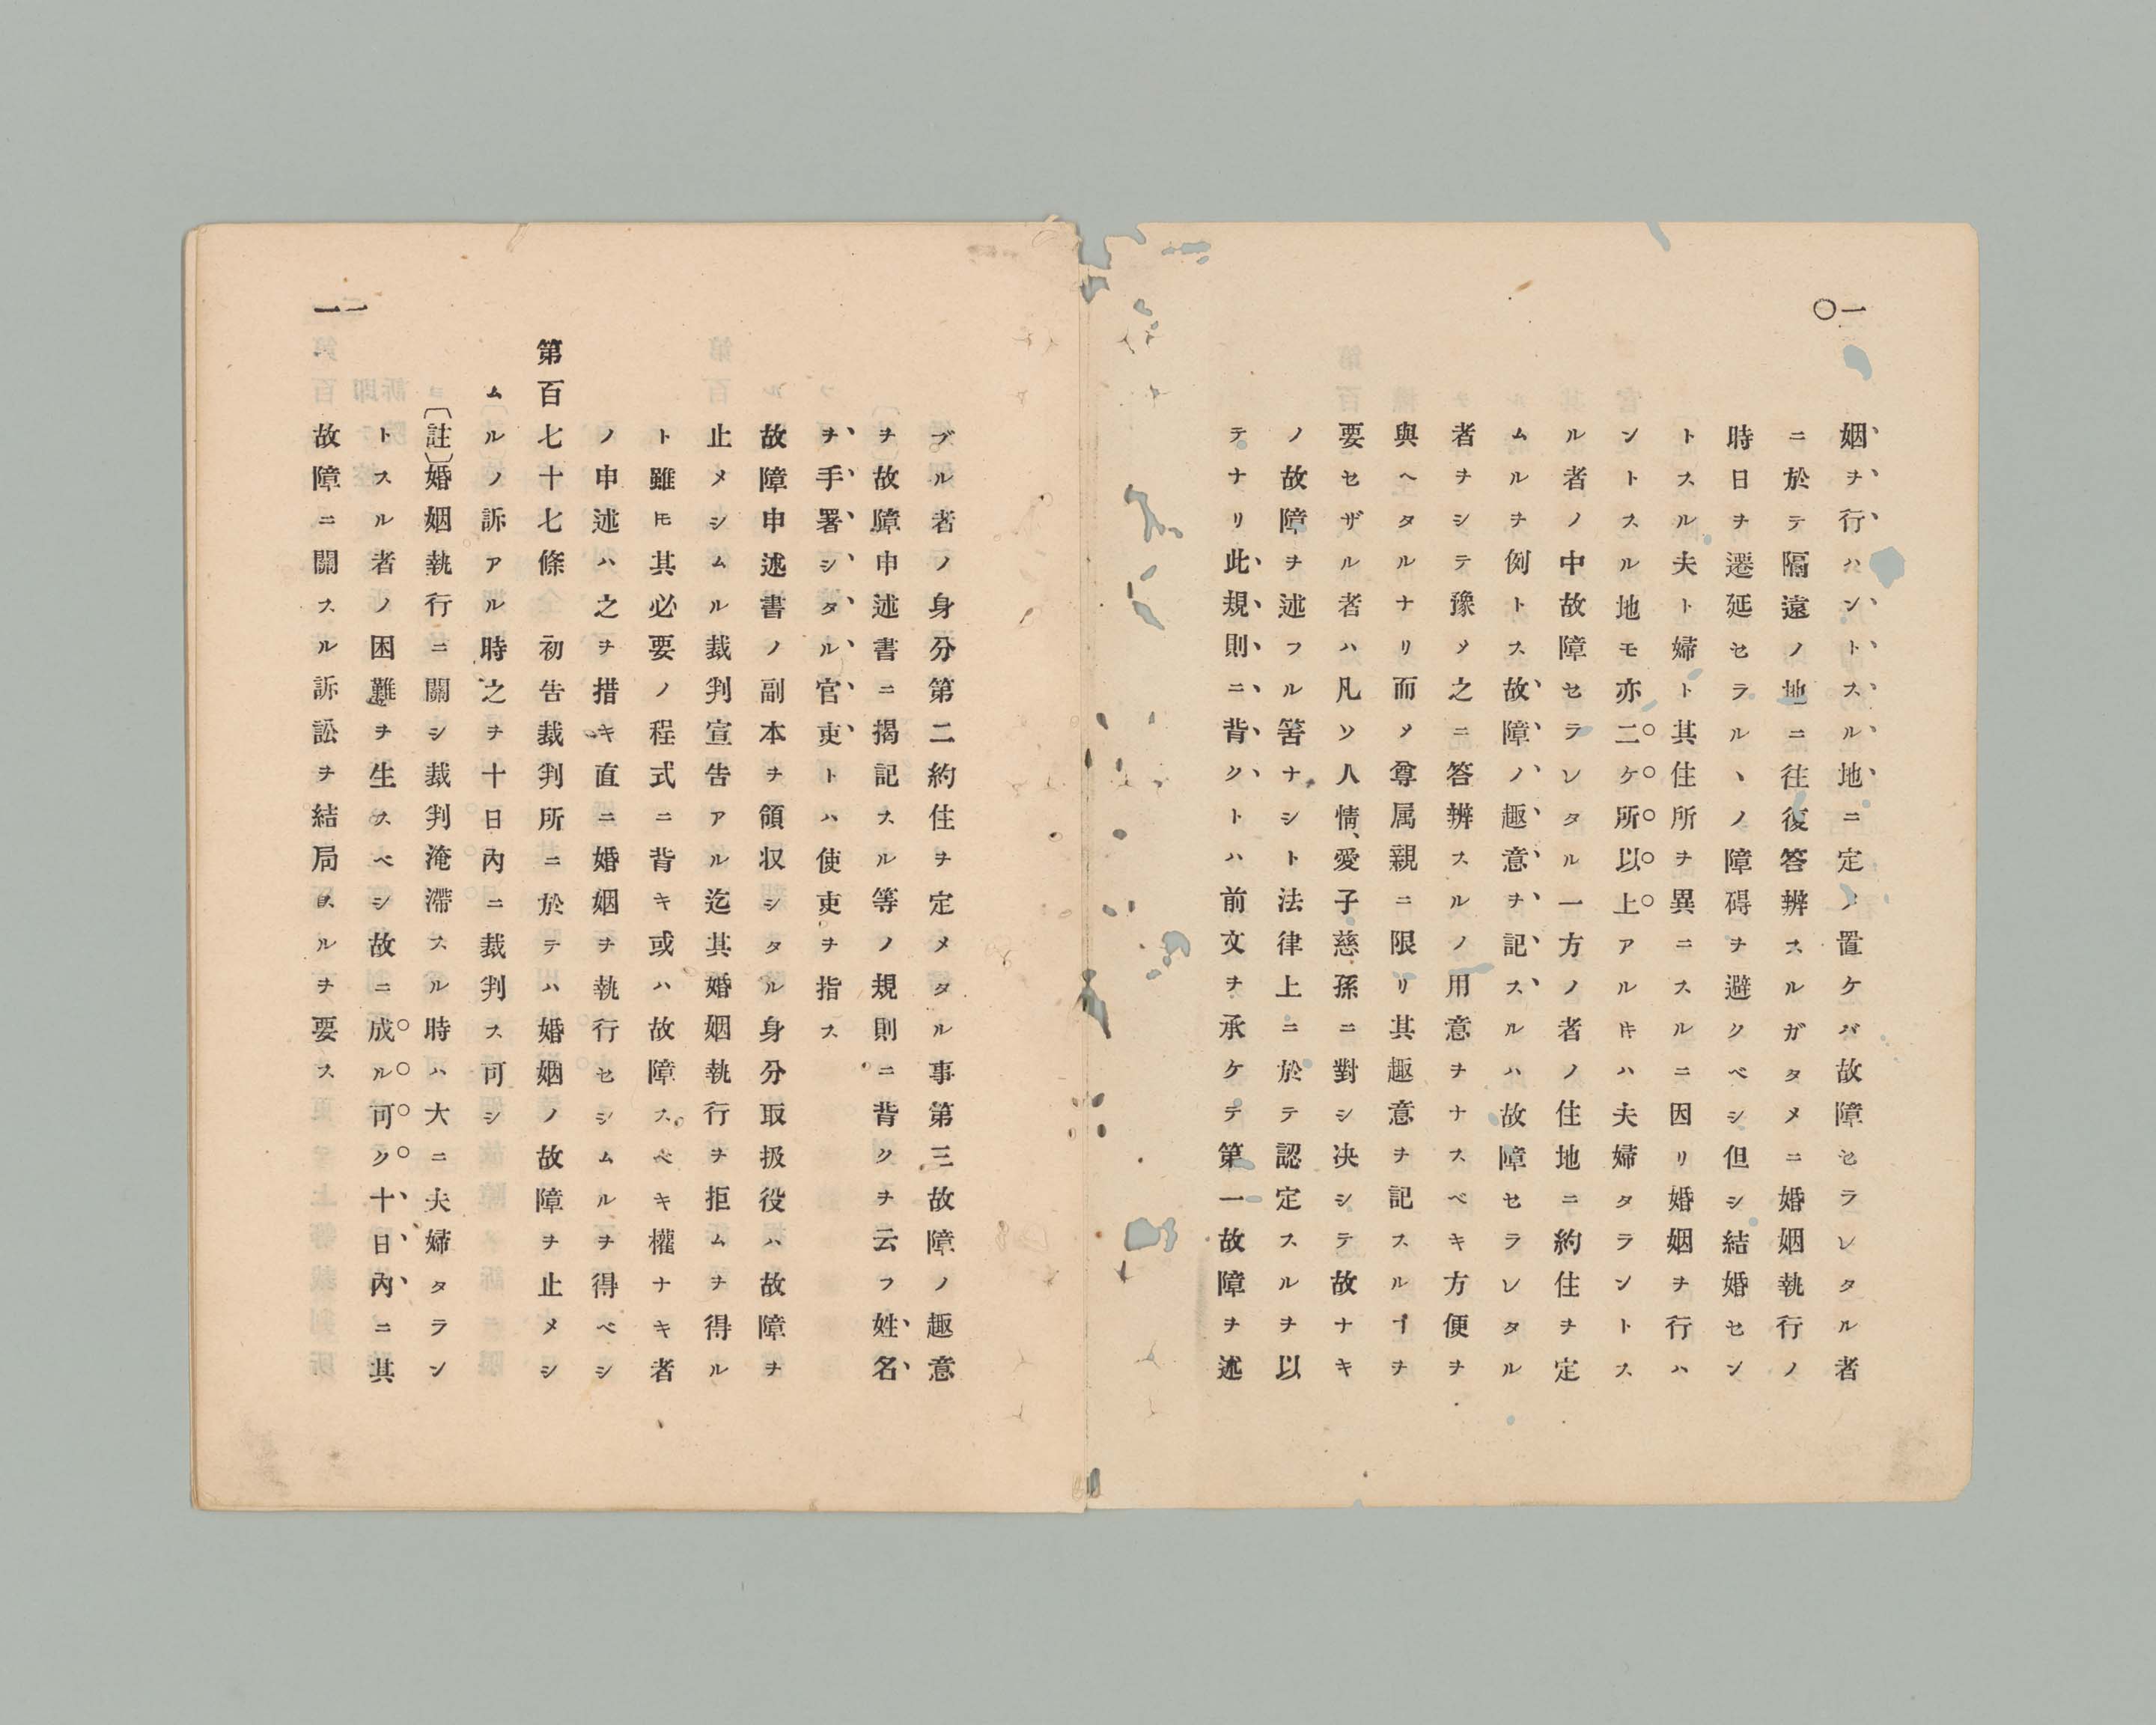 一〇
姻ヲ行ハントスル地ニ定メ置ケバ故障セラレタル者
ニ於テ隔遠ノ地ニ往復答辨スルガタメニ婚姻執行ノ
時日ヲ遷延セラルヽノ障碍ヲ避クベシ但シ結婚セン
トスル夫ト婦ト其住所ヲ異ニスルニ因リ婚姻ヲ行ハ
ントスル地モ亦二ケ所以上アルキハ夫婦タラントス
ル者ノ中故障セラレタル一方ノ者ノ住地ニ約住ヲ定
ムルヲ例トス故障ノ趣意ヲ記スルハ故障セラレタル
者ヲシテ豫メ之ニ答辨スルノ用意ヲナスベキ方便ヲ
與ヘタルナリ而メ尊属親ニ限リ其趣意ヲ記スルヿヲ
要セザルル者ハ凡ソ人情、愛子慈孫ニ對シ决シテ故ナキ
ノ故障ヲ述フル筈ナシト法律上ニ於テ認定スルヲ以
テナリ此規則ニ背クトハ前文ヲ承ケテ第一故障ヲ述
一一
ブル者ノ身分第二約住ヲ定メタル事第三故障ノ趣意
ヲ故障申述書ニ揭記スル等ノ規則ニ背クヲ云フ姓名
ヲ手署シタル官吏トハ使吏ヲ指ス
故障申述書ノ副本ヲ領収シタル身分取扱役ハ故障ヲ
止メシムル裁判宣告アル迄其婚姻執行ヲ拒ムヲ得ル
ト雖𪜈其必要ノ程式ニ背キ或ハ故障スベキ權ナキ者
ノ申述ハ之ヲ措キ直ニ婚姻ヲ執行セシムルヲ得ベシ
第百七十七條 初告裁判所ニ於テハ婚姻ノ故障ヲ止メシ
ムルノ訴アル時之ヲ十日內ニ裁判ス可シ
〔註〕婚姻執行ニ關シ裁判淹滯スル時ハ大ニ夫婦タラン
トスル者ノ困難ヲ生スベシ故ニ成ル可ク十日內ニ其
故障ニ關スル訴訟ヲ結局スルヲ要ス